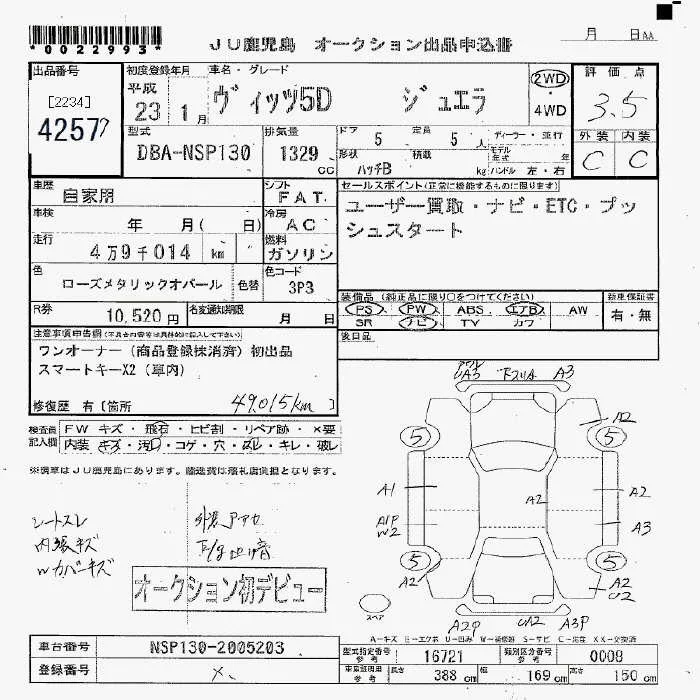 *0022993*
JU鹿児島 オークション出品申込書
月 日AA
出品番号
[2234]
42577
初度登録年月
平成
23 1月
車名・グレード
ヴィッツ5D ジュエラ
2WD
・
4WD
評価点
3.5
外装 内装
C C
型式
DBA-NSP130
排気量
1329
cc
ドア 5 定員 5人
形状 ハッチB 積載 kg
ディーラー・並行
モデル年式 年
ハンドル 左・右
車歴
自家用
シフト
FAT
車検
年 月( 日)
冷房
AC
走行
4万9千014 km
燃料
ガソリン
色
ローズメタリックオパール
色替
色コード
3P3
R券
10,520円
名変通知期限
月 日
セールスポイント(正常に機能するものに限ります)
ユーザー買取・ナビ・ETC・プッ
シュスタート
装備品(純正品に限り○をつけてください)
PS PW ABS エアB AW
SR ナビ TV カワ
新車保証書
有・無
後日品
注意事項申告欄
ワンオーナー(商品登録抹消済)初出品
スマートキーX2(車内)
修復歴 有〔箇所 〕
49,015km
検査員
記入欄
FW キズ・飛石・ヒビ割・リペア跡・×要
内装 キズ・汚れ・コゲ・穴・スレ・キレ・破レ
※現車はJU鹿児島にあります。陸送費は落札店負担となります。
シートスレ
内張キズ
Wカバーキズ
オークション初デビュー
UA3 下スリA A3
A2
5 5
A1
A2
A2
A1P
W2
A3
5 5
A2
A2
U2
スペア
A2P UA2 A3P
A-キズ E-エクボ U-凹み W-補修跡 S-サビ C-腐食 XX-交換済
車台番号
NSP130-2005203
登録番号
×
型式指定番号
参考
16721
類別区分番号
参考
0009
長さ 388 cm
幅 169 cm
高さ 150 cm